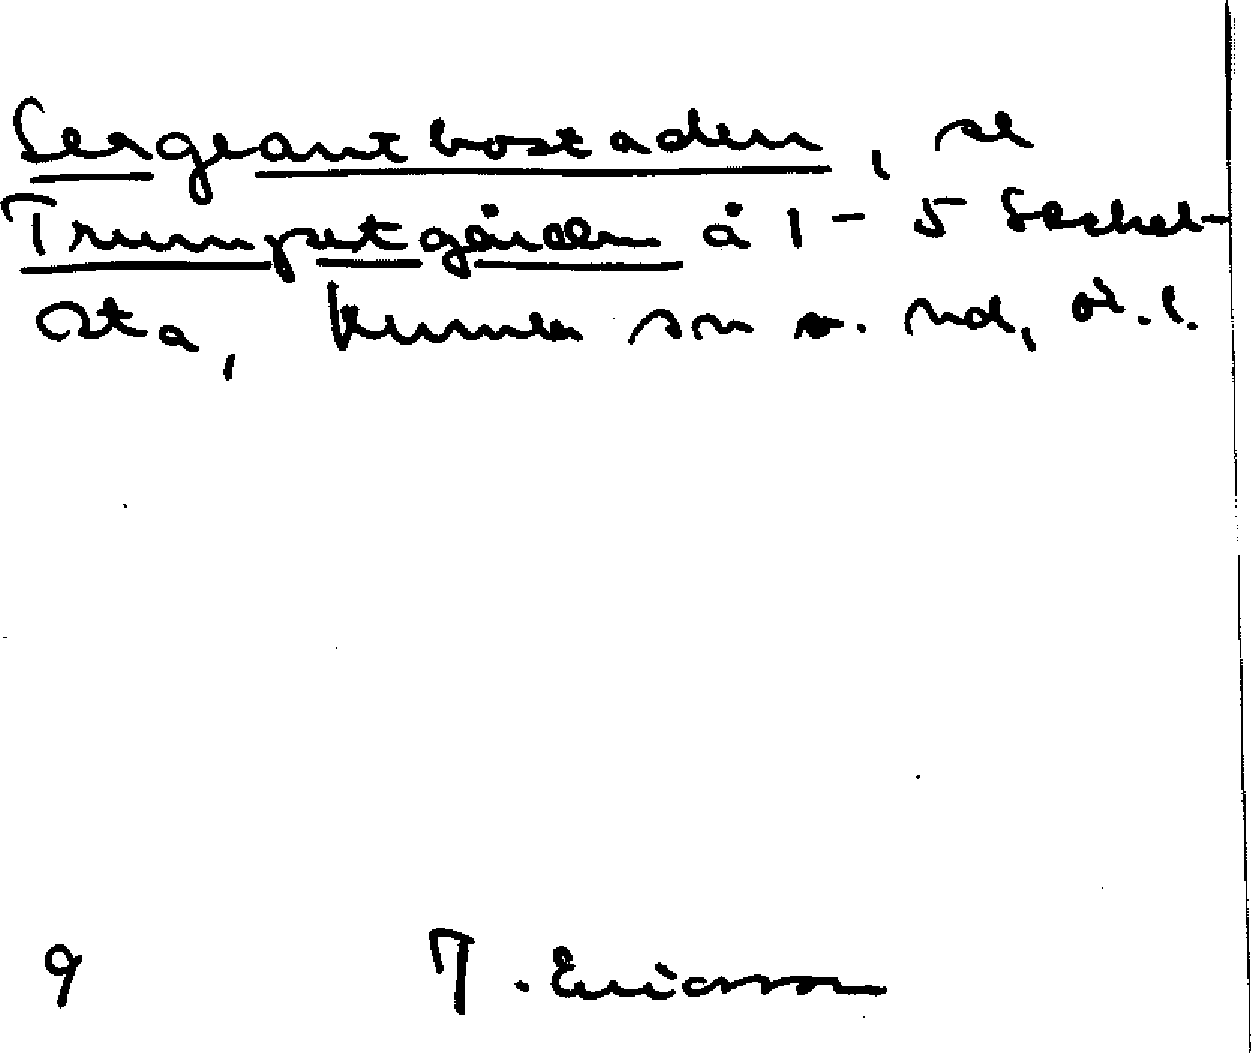 Sergeantbostaden, se
Trumpetgården å 1 - 5 Sechel-
sta, Kumla sn o. hd, Ö.l.
9 T. Ericsson